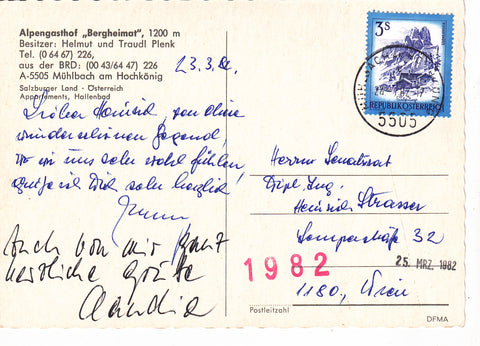 Alpengasthof „Bergheimat", 1200 m
Besitzer: Helmut und Traudl Plenk
Tel. (0 64 67) 226,
aus der BRD: (00 43/64 47) 226
A-5505 Mühlbach am Hochkönig
Salzburger Land · Österreich
Appartements, Hallenbad
23.3.82.
Lieber Heinrich, von dieser
wunderschönen Gegend,
wo wir uns sehr wohl fühlen,
grüße ich Dich sehr herzlich!
Auch von mir
herzliche Grüße
Claudia
3S
REPUBLIK ÖSTERREICH
5505
Herrn Senatsrat
Dipl. Ing.
Heinrich Strasser
Semperstraße 32
1982
25. MRZ. 1982
1180, Wien
Postleitzahl
DFMA